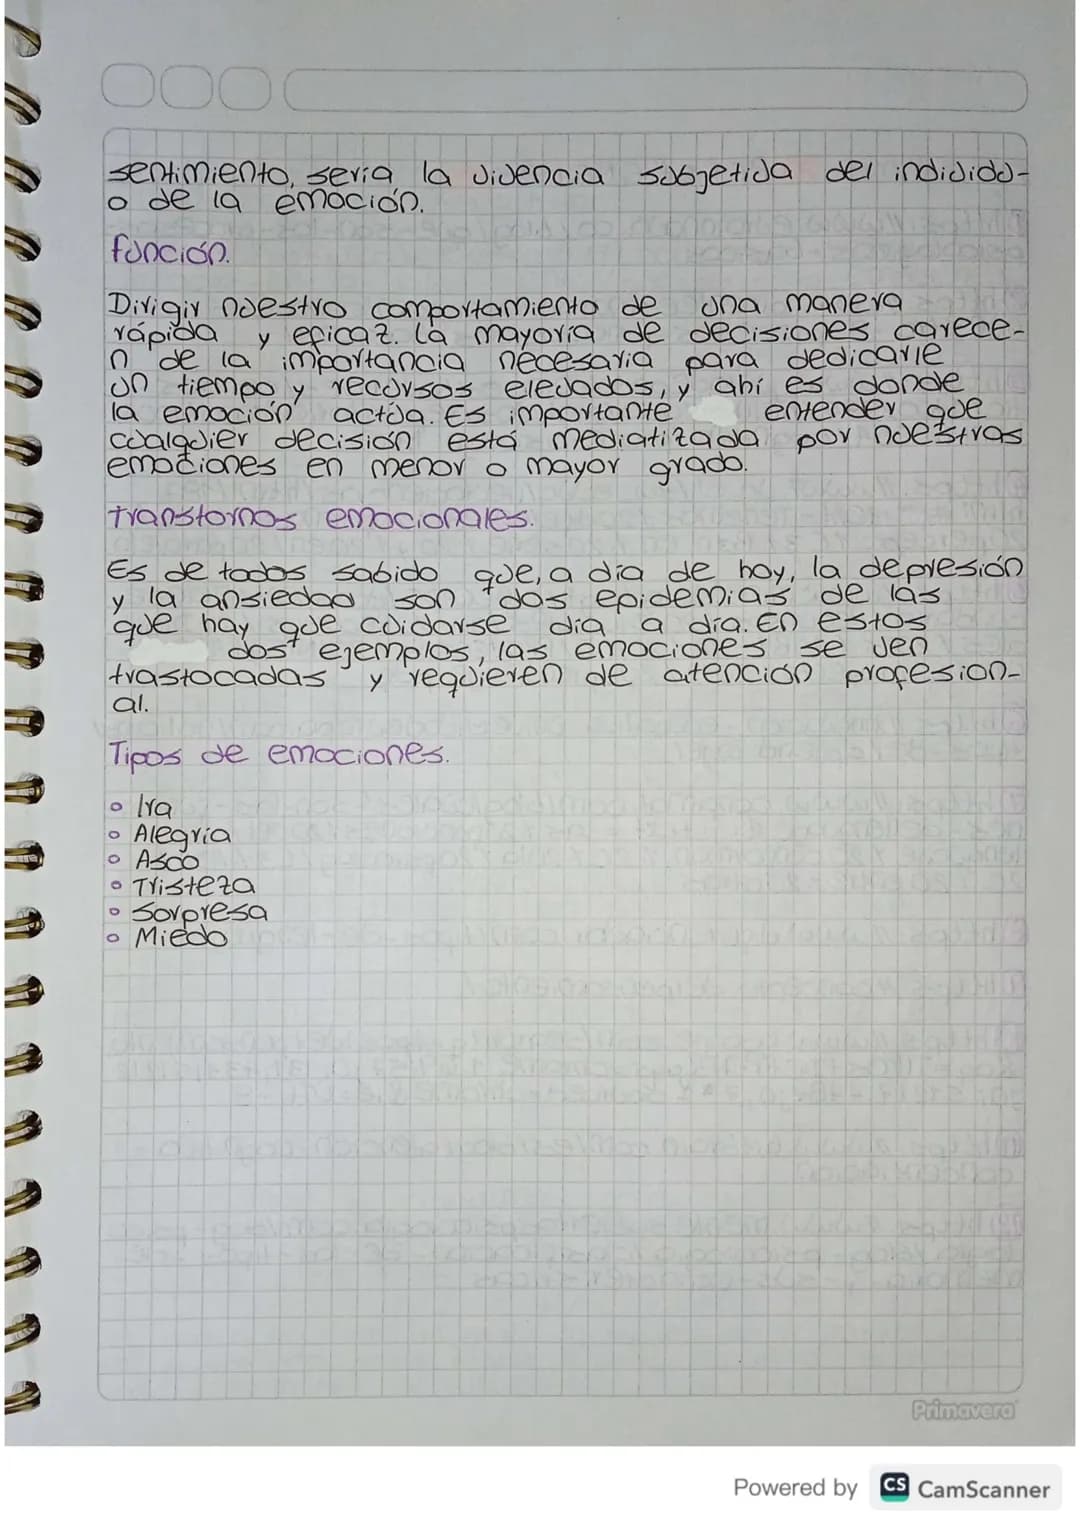 sentimiento, sería la vivencia subjetiva del individu-
o de la emoción.
función.
Dirigir nuestro comportamiento de una manera
rápida y eficaz. La mayoría de decisiones carece-
n de la importancia necesaria para dedicarle
un tiempo y recursos elevados, y ahí es donde
la emoción actúa. Es importante entender que
cualquier decisión está mediatizada por nuestras
emociones en menor o mayor grado.
Transtornos emocionales.
Es de todos sabido que, a día de hoy, la depresión
y la ansiedad son dos epidemias de las
que hay que cuidarse día a día. En estos
dos ejemplos, las emociones se ven
trastocadas y requieren de atención profesion-
al.
Tipos de emociones.
Ira
Alegría
Asco
Tristeza
Sorpresa
Miedo
Primavera
Powered by CS CamScanner